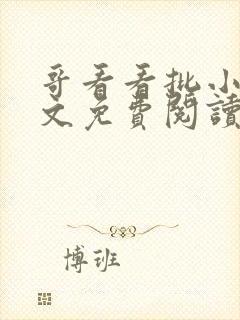 哥看看批小
文免費閱讀
博班